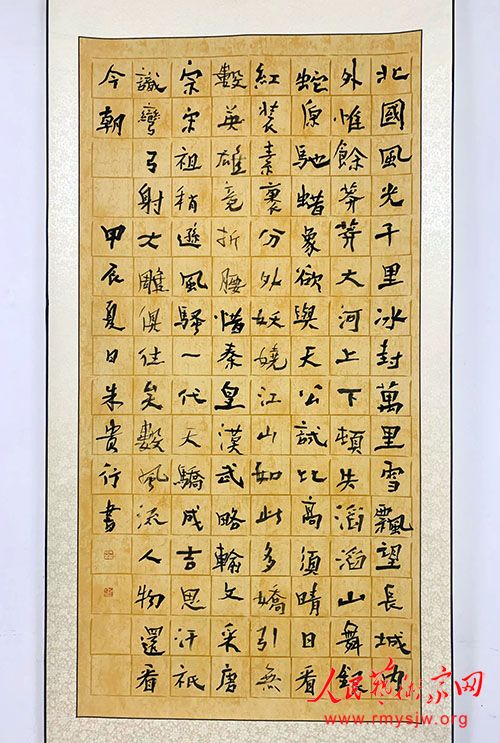 北國風光千里冰封萬里雪飄望長城內
外惟餘莽莽大河上下頓失滔滔山舞銀
蛇原馳蜡象欲與天公試比高須晴日看
紅裝素裹分外妖嬈江山如此多嬌引無
數英雄竟折腰惜秦皇漢武略輸文采唐
宗宋祖稍遜風騷一代天驕成吉思汗祇
識彎弓射大雕俱往矣數風流人物還看
今朝 甲辰夏日朱貴行書
人民藝術家网
www.rmysjw.org